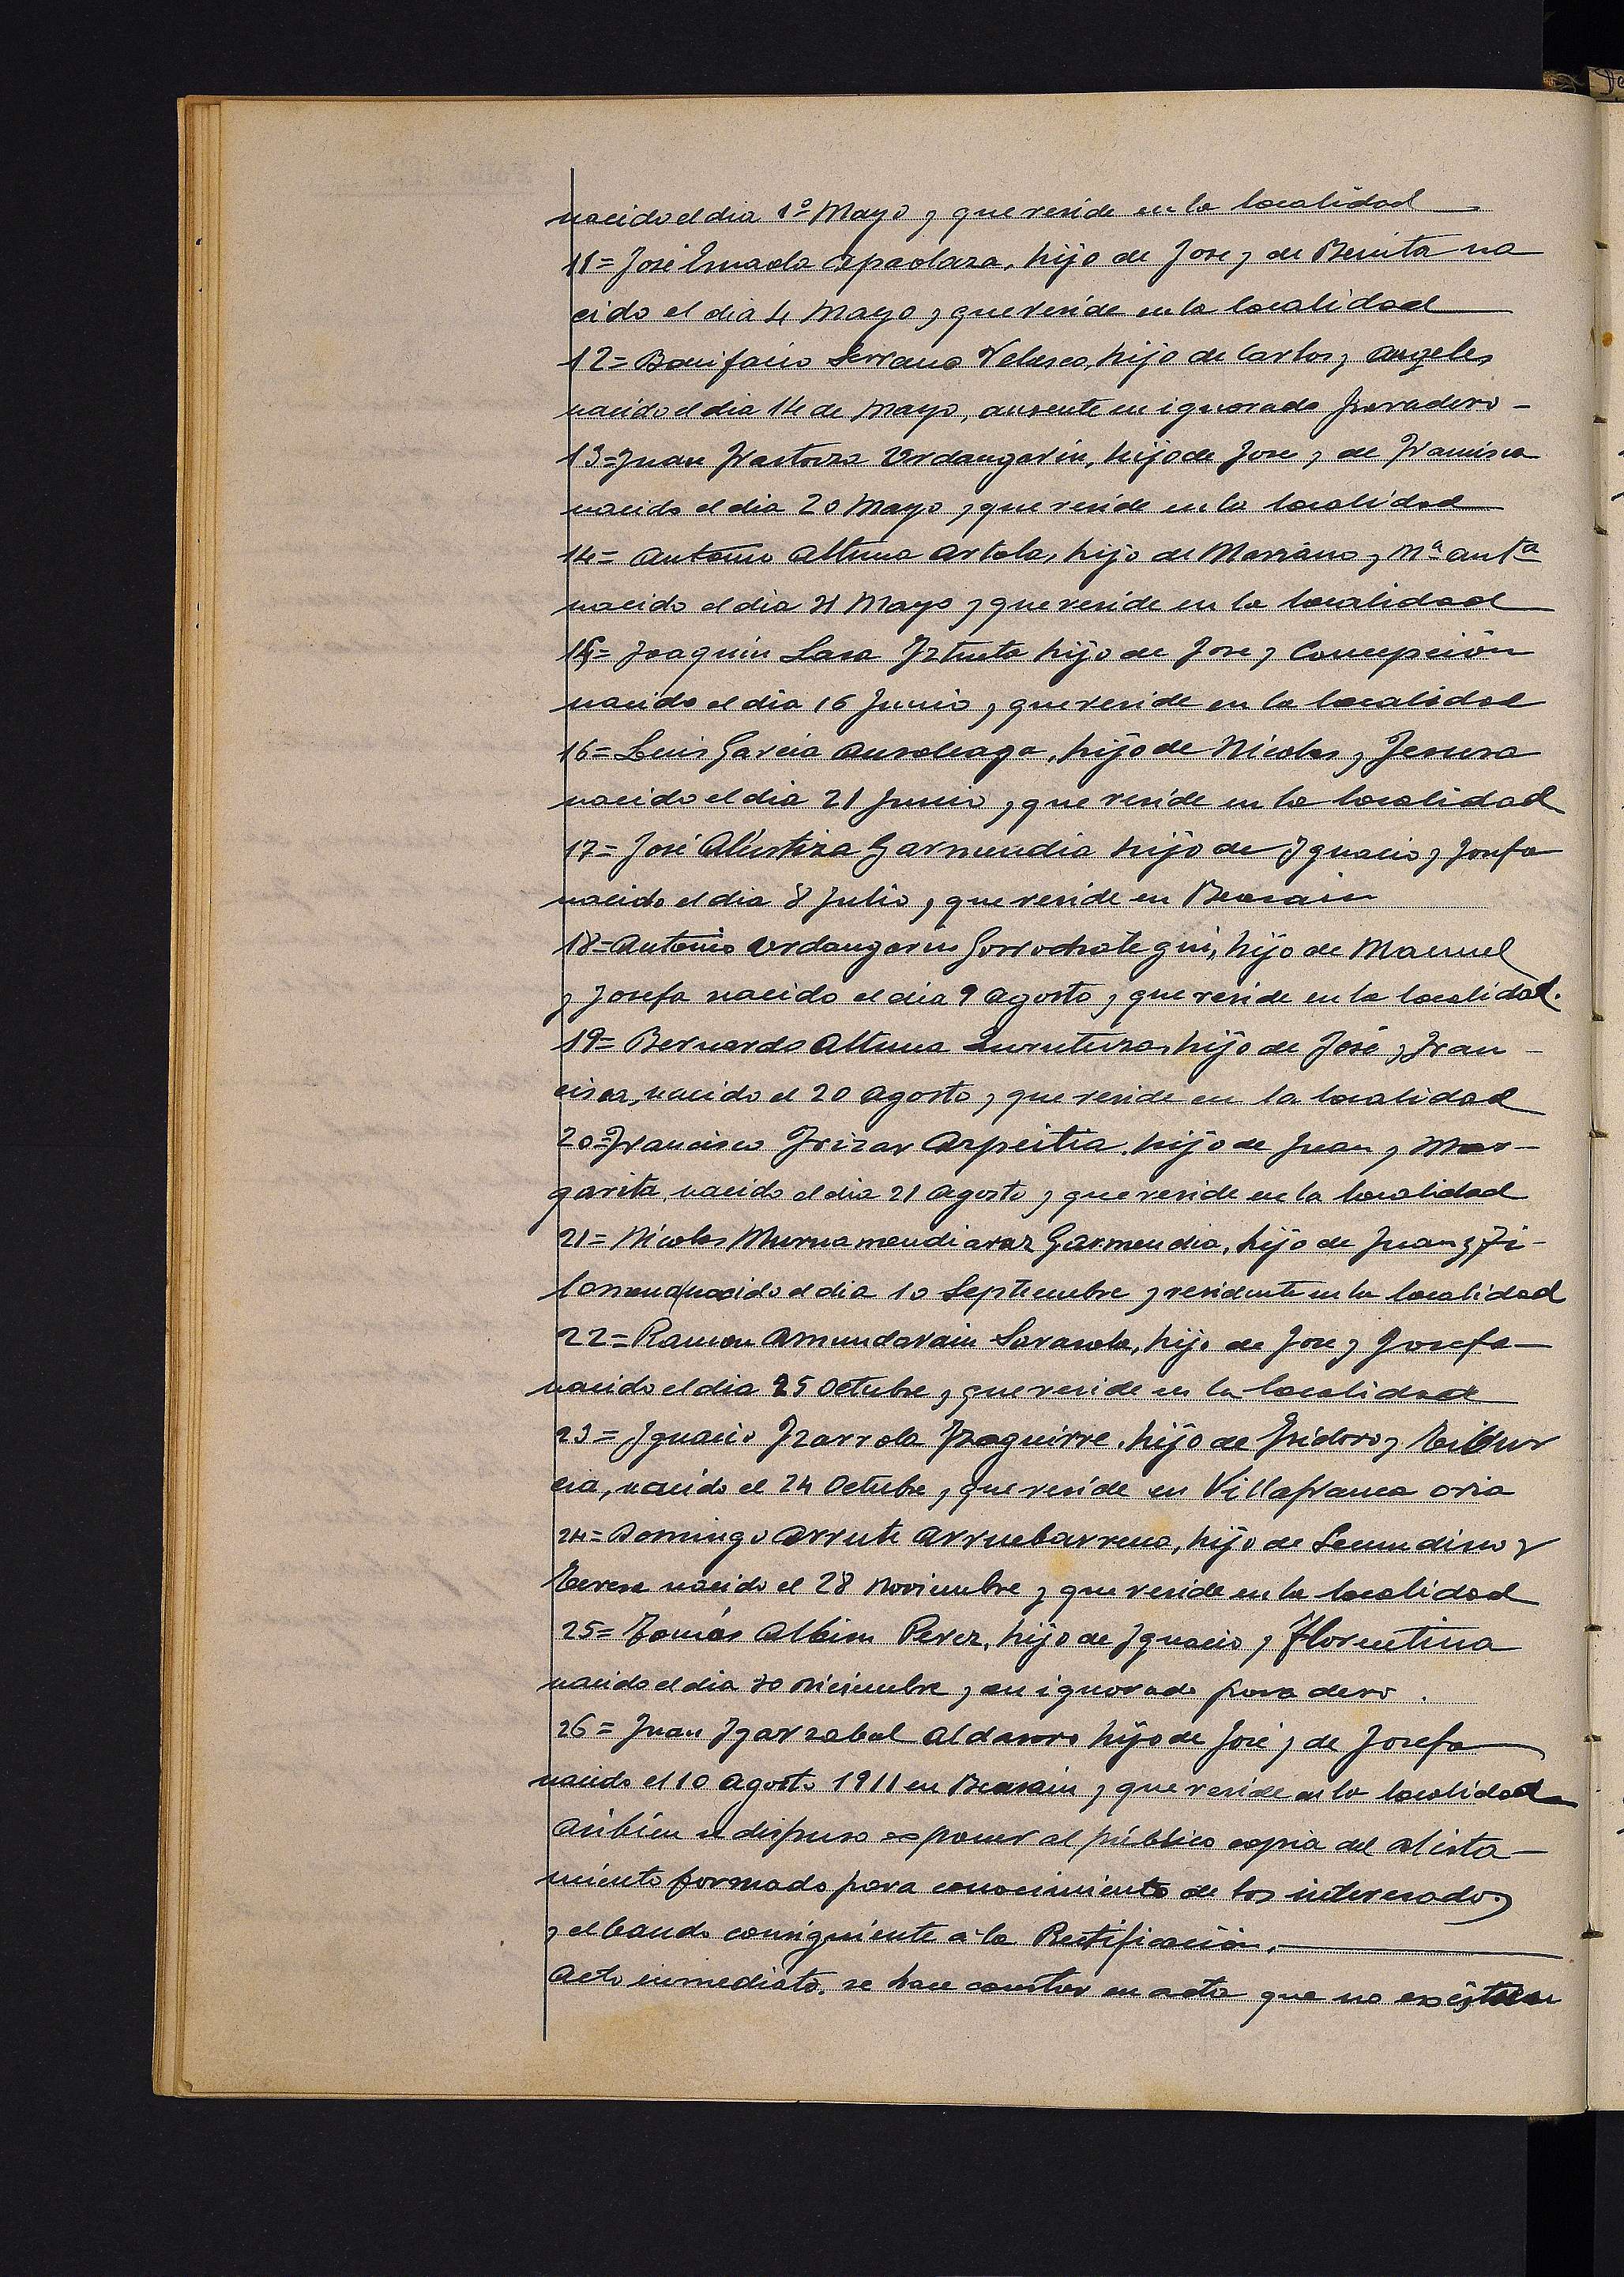 nacido el dia 1º Mayo y que reside en la localidad
11= José Imaola Apaolaza, hijo de Jose y de Benita na
cido el dia 4 Mayo y que reside en la localidad
12= Bonifacio Serrano Velasco, hijo de Carlos y Angeles
nacido el dia 14 de Mayo, ausente en ignorado paradero-
13= Juan Irastorza Urdangarin, hijo de Jose y de Francisca
nacido el dia 20 Mayo y que reside en la localidad
14= Antonio Altuna Artola, hijo de Mariano y Mª Antª
nacido el dia 21 Mayo y que reside en la localidad
15= Joaquin Lasa Iztueta hijo de Jose y Concepción
nacido el dia 16 Junio y que reside en la localidad
16= Luis Garcia Ansoleaga, hijo de Nicolas y Jesusa
nacido el dia 21 Junio y que reside en la localidad
17= José Alustiza Garmendia hijo de Ignacio y Josefa
nacido el dia 8 Julio y que reside en Beasain
18= Antonio Urdangarin Gorrochategui, hijo de Manuel
y Josefa nacido el dia 9 Agosto y que reside en la localidad.
19= Bernardo Altuna Zurutuza, hijo de José y Fran-
cisca, nacido el 20 Agosto y que reside en la localidad
20= Francisco Irizar Azpeitia, hijo de Juan y Mar-
garita, nacido el dia 21 Agosto y que reside en la localidad
21= Nicolas Murnamendiaraz Garmendia, hijo de Juan y Fi-
lomena, nacido el dia 10 Septiembre y residente en la localidad
22= Ramon Amundarain Sarasola, hijo de Jose y Josefa-
nacido el dia 25 Octubre y que reside en la localidad
23= Ignacio Izarrola Izaguirre, hijo de Isidoro y Tibur
cia, nacido el 24 Octubre y que reside en Villafranca Oria
24= Domingo Arruti Arruebarrena, hijo de Secundino y
Teresa nacido el 28 Noviembre y que reside en la localidad
25= Tomás Albisu Perez, hijo de Ignacio y Florentina
nacido el dia 30 Diciembre y en ignorado paradero.
26= Juan Igarzabal Aldasoro hijo de José y de Josefa
nacido el 10 Agosto 1911 en Beasain y que reside en la localidad
Asibien se dispuso exponer al público copia del alista-
miento formado para conocimiento de los interesados
y el bando consiguiente á la Rectificación.
Acto inmediato, se hace constar en acta que no existian